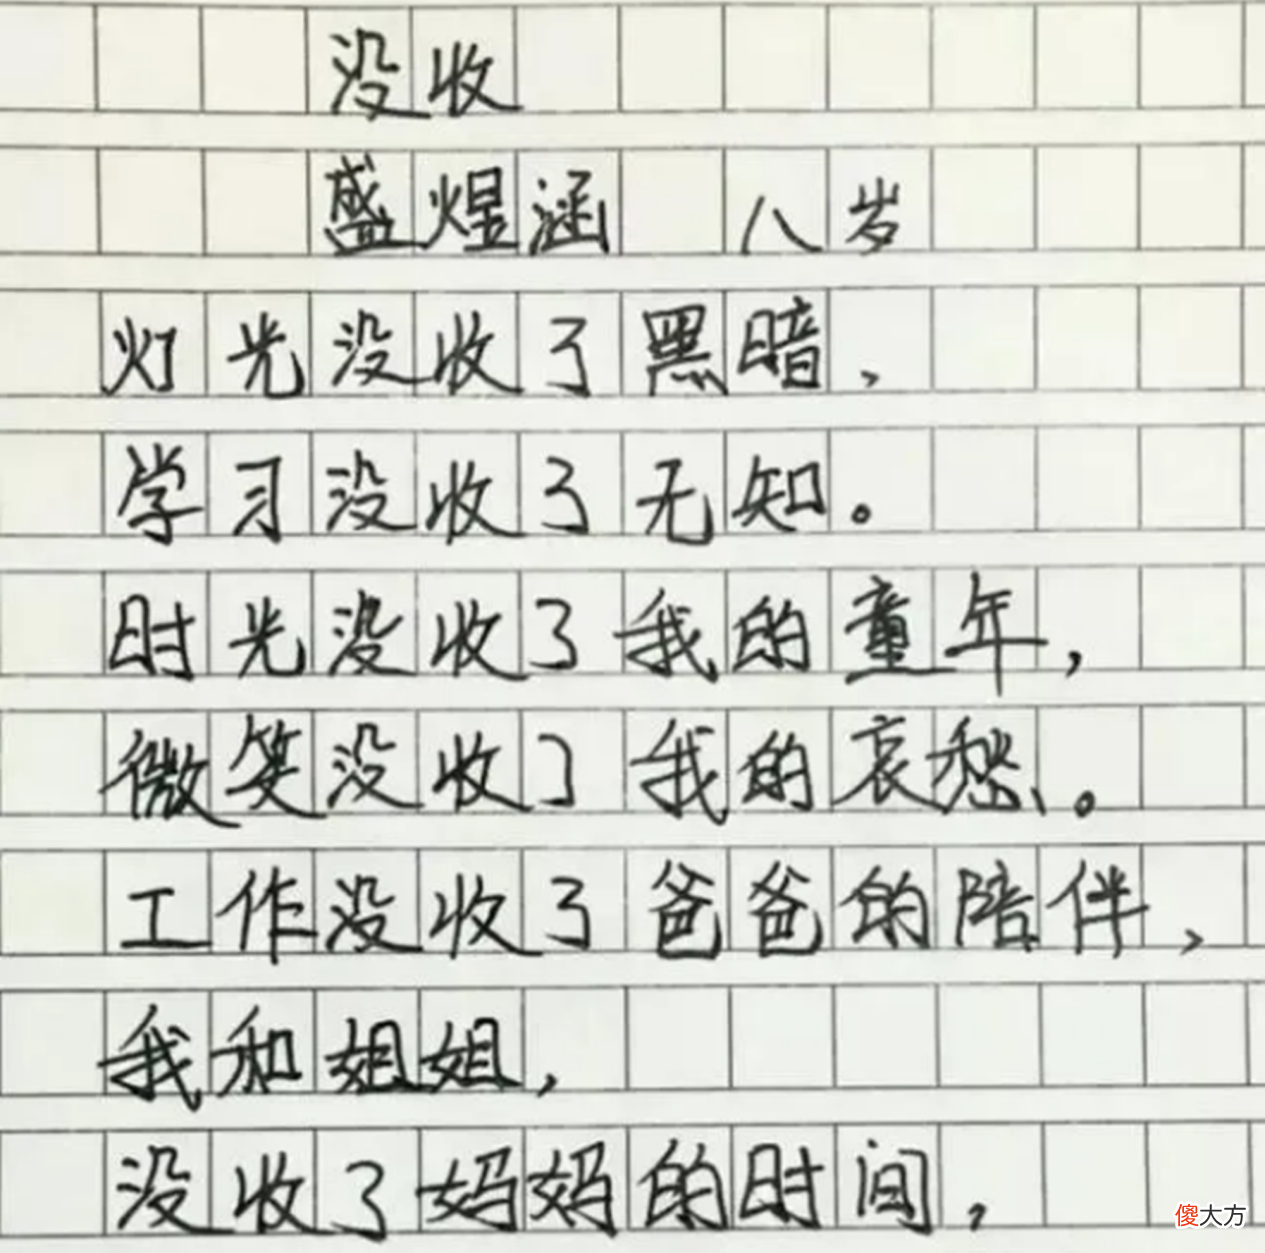 没收
盛煜涵 八岁
灯光没收了黑暗，
学习没收了无知。
时光没收了我的童年，
微笑没收了我的哀愁。
工作没收了爸爸的陪伴，
我和姐姐，
没收了妈妈的时间，
傻大方